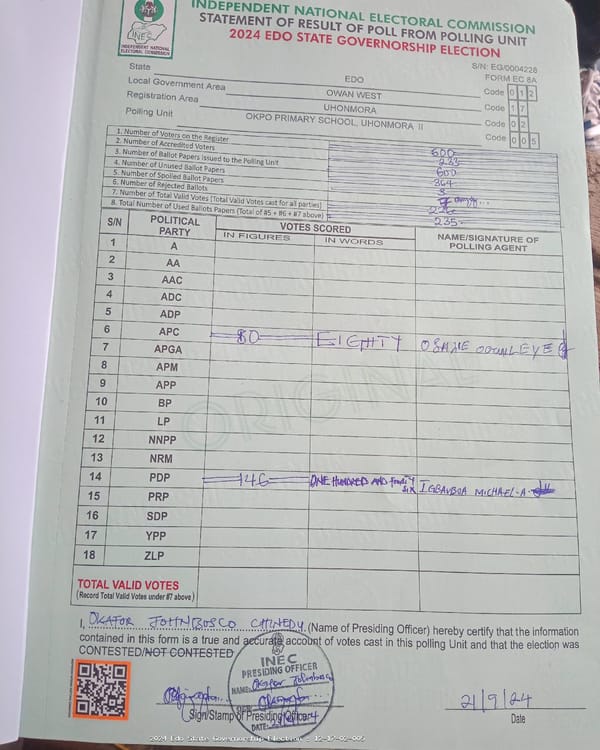 INDEPENDENT NATIONAL ELECTORAL COMMISSION
STATEMENT OF RESULT OF POLL FROM POLLING UNIT
2024 EDO STATE GOVERNORSHIP ELECTION
INEC
INDEPENDENT NATIONAL ELECTORAL COMMISSION
S/N: EG/0004228
FORM EC 8A
State EDO Code 0 1 2
Local Government Area OWAN WEST Code 1 7
Registration Area UHONMORA Code 0 2
Polling Unit OKPO PRIMARY SCHOOL, UHONMORA II Code 0 0 5
1. Number of Voters on the Register 600
2. Number of Accredited Voters 235
3. Number of Ballot Papers Issued to the Polling Unit 600
4. Number of Unused Ballot Papers 364
5. Number of Spoiled Ballot Papers
6. Number of Rejected Ballots 7
7. Number of Total Valid Votes (Total Valid Votes cast for all parties)
8. Total Number of Used Ballots Papers (Total of #5 + #6 + #7 above) 235
S/N POLITICAL PARTY VOTES SCORED NAME/SIGNATURE OF POLLING AGENT
IN FIGURES IN WORDS
1 A
2 AA
3 AAC
4 ADC
5 ADP
6 APC 80 EIGHTY
7 APGA
8 APM
9 APP
10 BP
11 LP
12 NNPP
13 NRM
14 PDP 146 ONE HUNDRED AND FOURTY SIX MICHAEL-A
15 PRP
16 SDP
17 YPP
18 ZLP
ORIGINAL
TOTAL VALID VOTES
(Record Total Valid Votes under #7 above)
I, OKAFOR JOHNBOSCO CHINEDU (Name of Presiding Officer) hereby certify that the information
contained in this form is a true and accurate account of votes cast in this polling Unit and that the election was
CONTESTED/NOT CONTESTED
INEC
PRESIDING OFFICER
NAME: Okafor Johnbosco
DATE:
Sign/Stamp of Presiding Officer
21/9/24
Date
2024 Edo State Governorship Election - 12-17-02-005